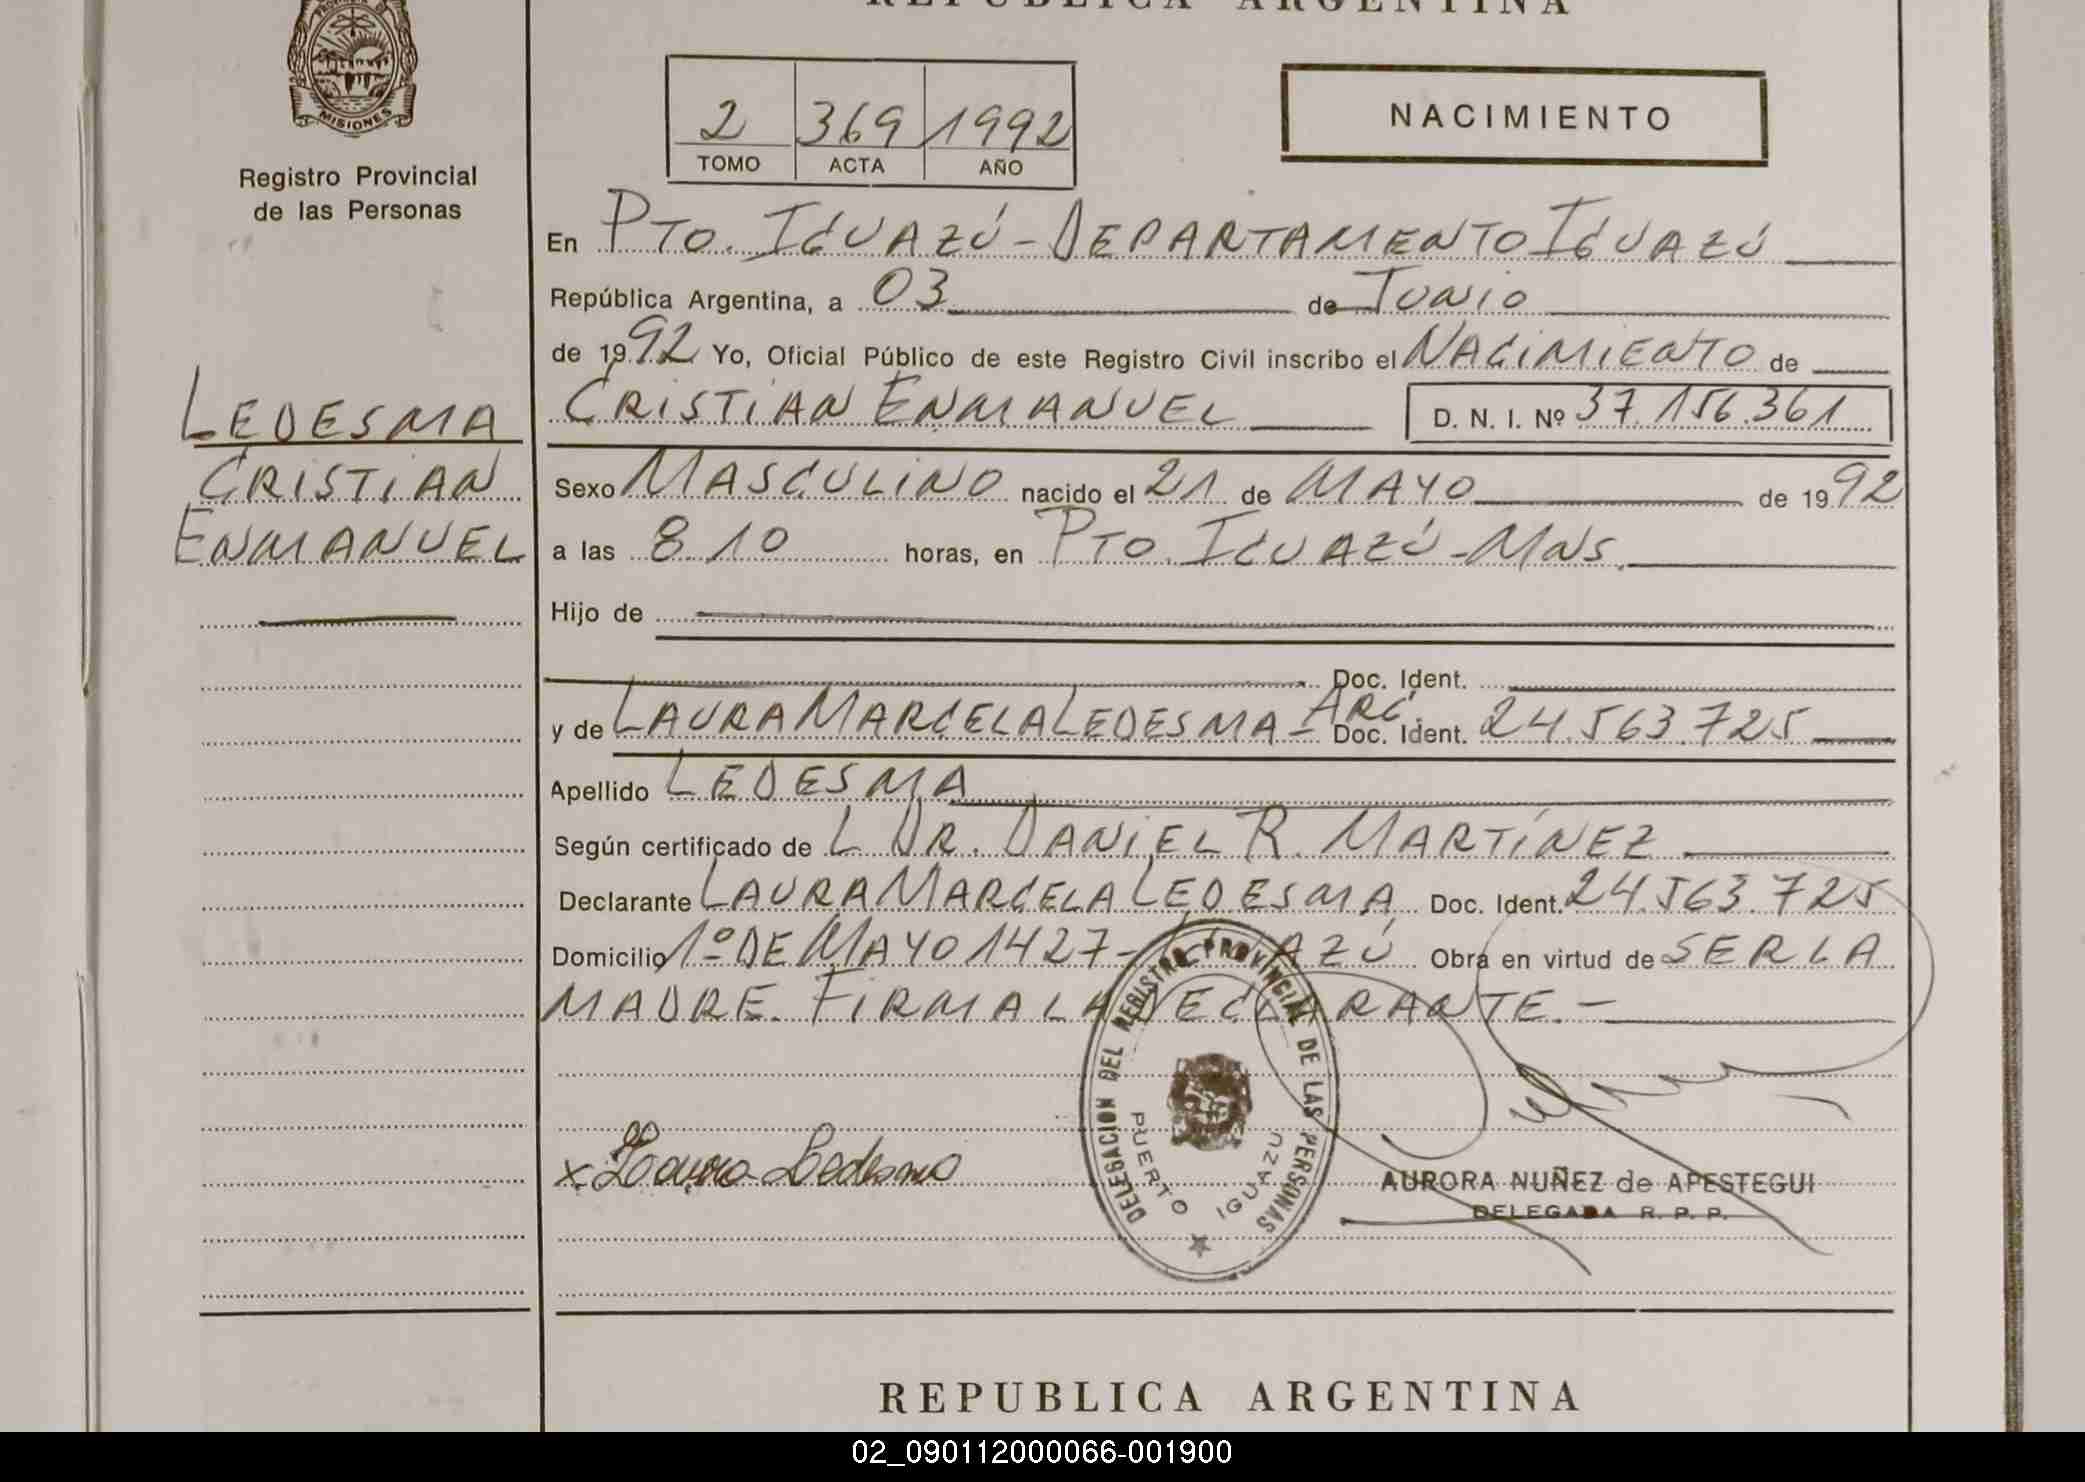 REPUBLICA ARGENTINA
PROVINCIA DE
MISIONES
Registro Provincial
de las Personas
2 369 1992
TOMO ACTA AÑO
NACIMIENTO
En PTO. IGUAZÚ - DEPARTAMENTO IGUAZÚ
República Argentina, a 03 de JUNIO
de 1992 Yo, Oficial Público de este Registro Civil inscribo el NACIMIENTO de
CRISTIAN ENMANUEL D. N. I. Nº 37.156.361
LEDESMA
CRISTIAN
ENMANUEL
Sexo MASCULINO nacido el 21 de MAYO de 1992
a las 8 10 horas, en PTO. IGUAZÚ - MNS.
Hijo de
Doc. Ident.
y de LAURA MARCELA LEDESMA - ARG. Doc. Ident. 24.563.725
Apellido LEDESMA
Según certificado de L DR. DANIEL R. MARTÍNEZ
Declarante LAURA MARCELA LEDESMA Doc. Ident. 24.563.725
Domicilio 1º DE MAYO 1427 - IGUAZÚ Obra en virtud de SER LA
MADRE. FIRMA LA DECLARANTE. -
x Laura Ledesma
DELEGACION DEL REGISTRO PROVINCIAL DE LAS PERSONAS
PUERTO IGUAZU
AURORA NUÑEZ de APESTEGUI
DELEGADA R. P. P.
REPUBLICA ARGENTINA
02_090112000066-001900